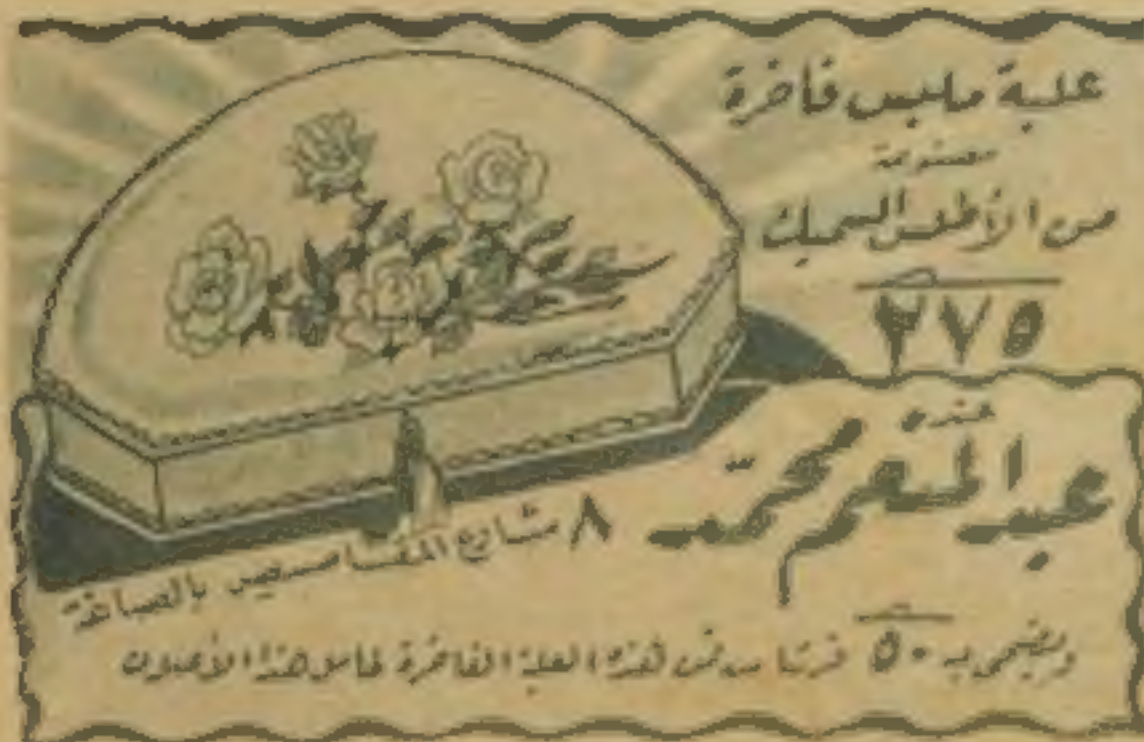 علبة ملبس فاخرة
مصنوعة
من الأطلس السميك
٢٧٥
عند
عبد المنعم محمد
٨ شارع المقاصيص بالصاغة
ويضحى بـ ٥٠ قرشا من ثمن هذه العلبة الفاخرة لحامل هذا الأعلان